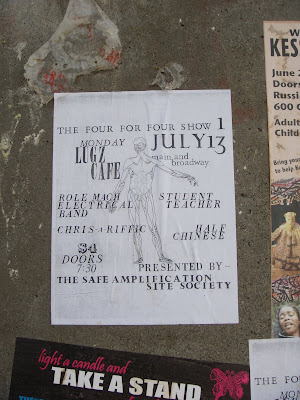 THE FOUR FOR FOUR SHOW 1
MONDAY JULY 13
LUGZ CAFE
main and broadway
ROLE MACH ELECTRICAL BAND
STUDENT TEACHER
CHRIS-A-RIFFIC
HALF CHINESE
$4
DOORS 7:30
PRESENTED BY-
THE SAFE AMPLIFICATION SITE SOCIETY
light a candle and
TAKE A STAND
W
KES
June
Doors
Russia
600 C
Adult
Childr
Bring your
to help
THE FOUR